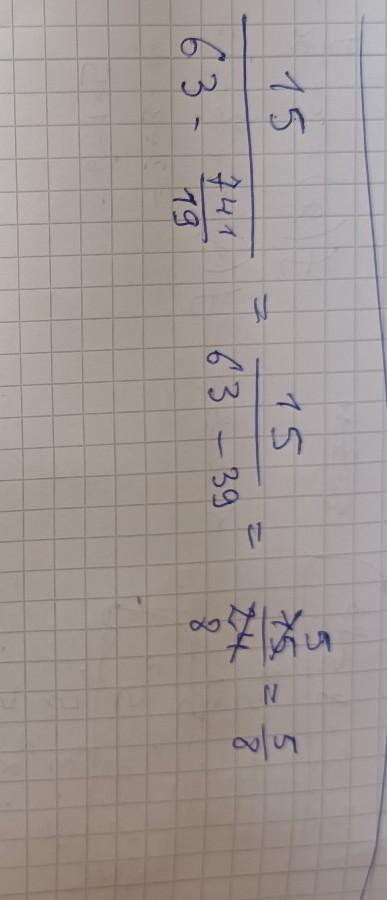 15 / (63 - 741/19) = 15 / (63 - 39) = 15/24 = 5/8
5
8